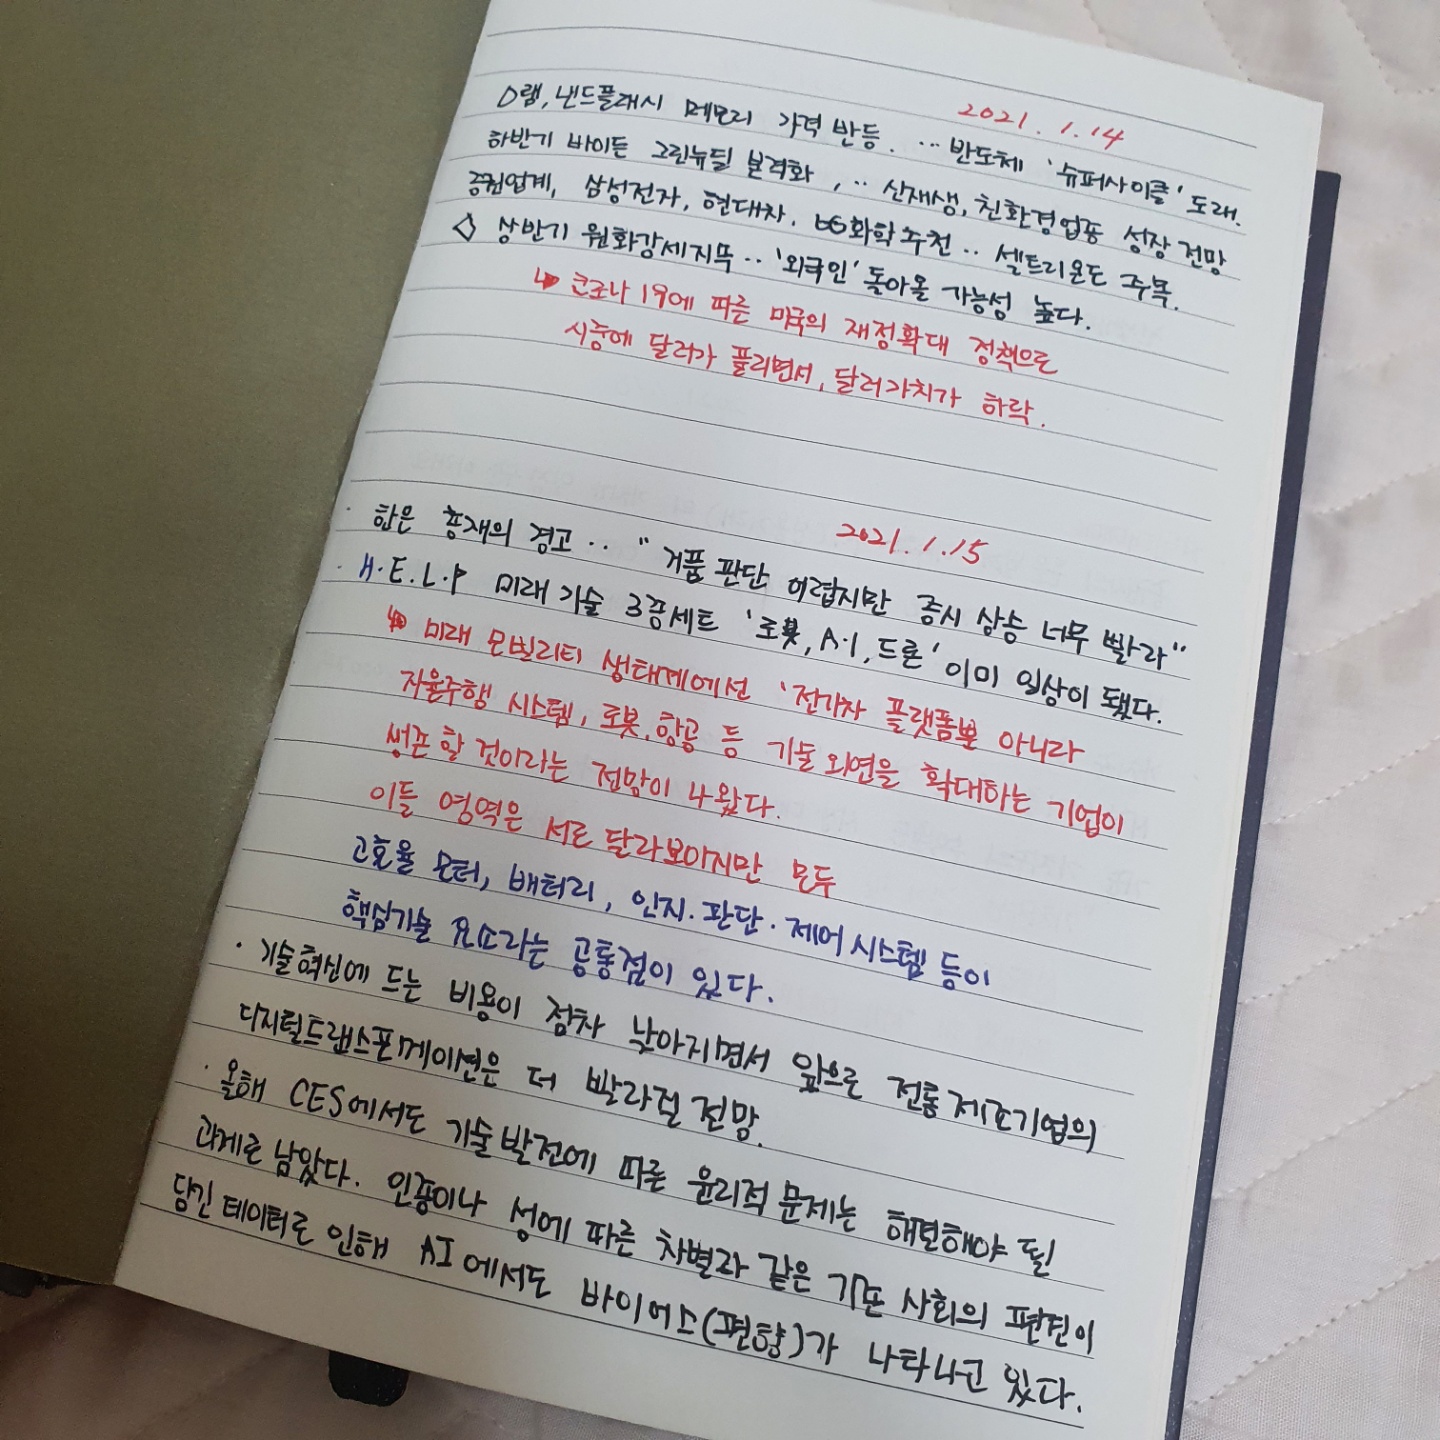 2021.1.14
D램, 낸드플래시 메모리 가격 반등. ‥반도체 '슈퍼사이클' 도래.
하반기 바이든 그린뉴딜 본격화, ‥ 신재생, 친환경업종 성장 전망
증권업계, 삼성전자, 현대차, LG화학 추천‥ 셀트리온도 주목.
◇ 상반기 원화강세지뚝‥'외국인' 돌아올 가능성 높다.
↳ 코로나 19에 따른 미국의 재정확대 정책으로
시중에 달러가 풀리면서, 달러가치가 하락.
2021.1.15
· 한은 총재의 경고‥ "거품 판단 어렵지만 증시 상승 너무 빨라"
· H.E.L.P 미래 기술 3종세트 '로봇, A.I, 드론' 이미 일상이 됐다.
↳ 미래 모빌리티 생태계에선 '전기차 플랫폼뿐 아니라
자율주행 시스템, 로봇, 항공 등 기술 외연을 확대하는 기업이
생존 할 것이라는 전망이 나왔다.
이들 영역은 서로 달라보이지만 모두
고효율 모터, 배터리, 인지·판단·제어 시스템 등이
핵심기술 요소라는 공통점이 있다.
· 기술혁신에 드는 비용이 점차 낮아지면서 앞으로 전통 제조기업의
디지털트랜스포메이션은 더 빨라질 전망.
· 올해 CES에서도 기술발전에 따른 윤리적 문제는 해결해야 될
과제로 남았다. 인종이나 성에 따른 차별과 같은 기존 사회의 편견이
담긴 데이터로 인해 AI에서도 바이어스(편향)가 나타나고 있다.